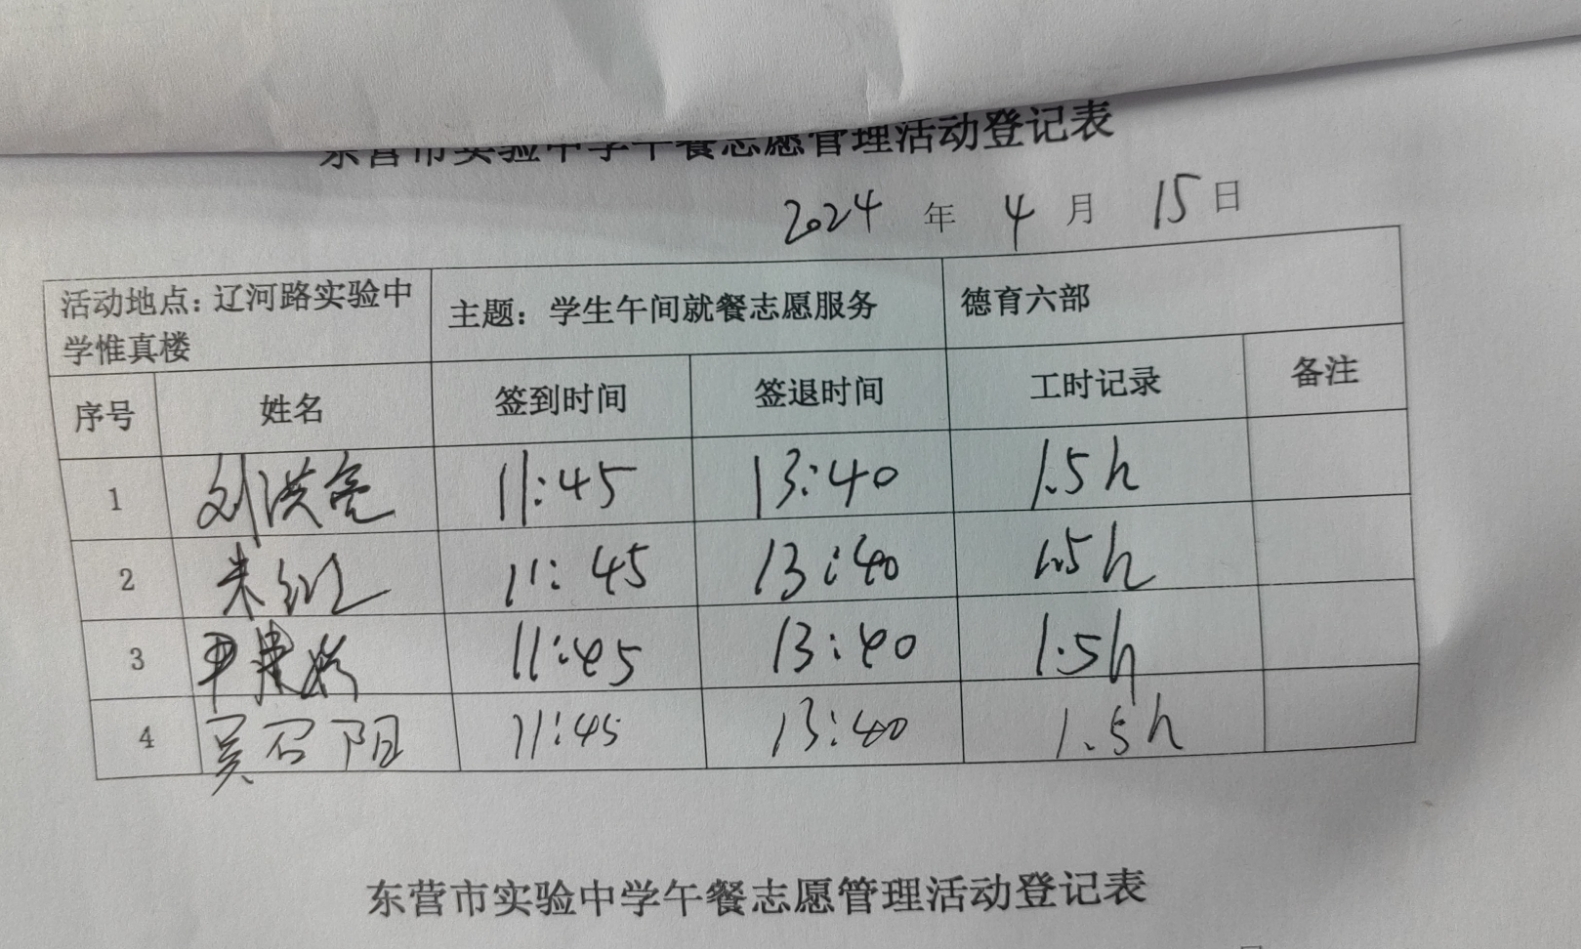 东营市实验中学午餐志愿管理活动登记表
2024 年 4 月 15 日
活动地点：辽河路实验中
学惟真楼
主题：学生午间就餐志愿服务
德育六部
序号 姓名 签到时间 签退时间 工时记录 备注
1 刘洪亮 11:45 13:40 1.5h
2 朱红 11:45 13:40 1.5h
3 11:45 13:40 1.5h
4 吴召阳 11:45 13:40 1.5h
东营市实验中学午餐志愿管理活动登记表